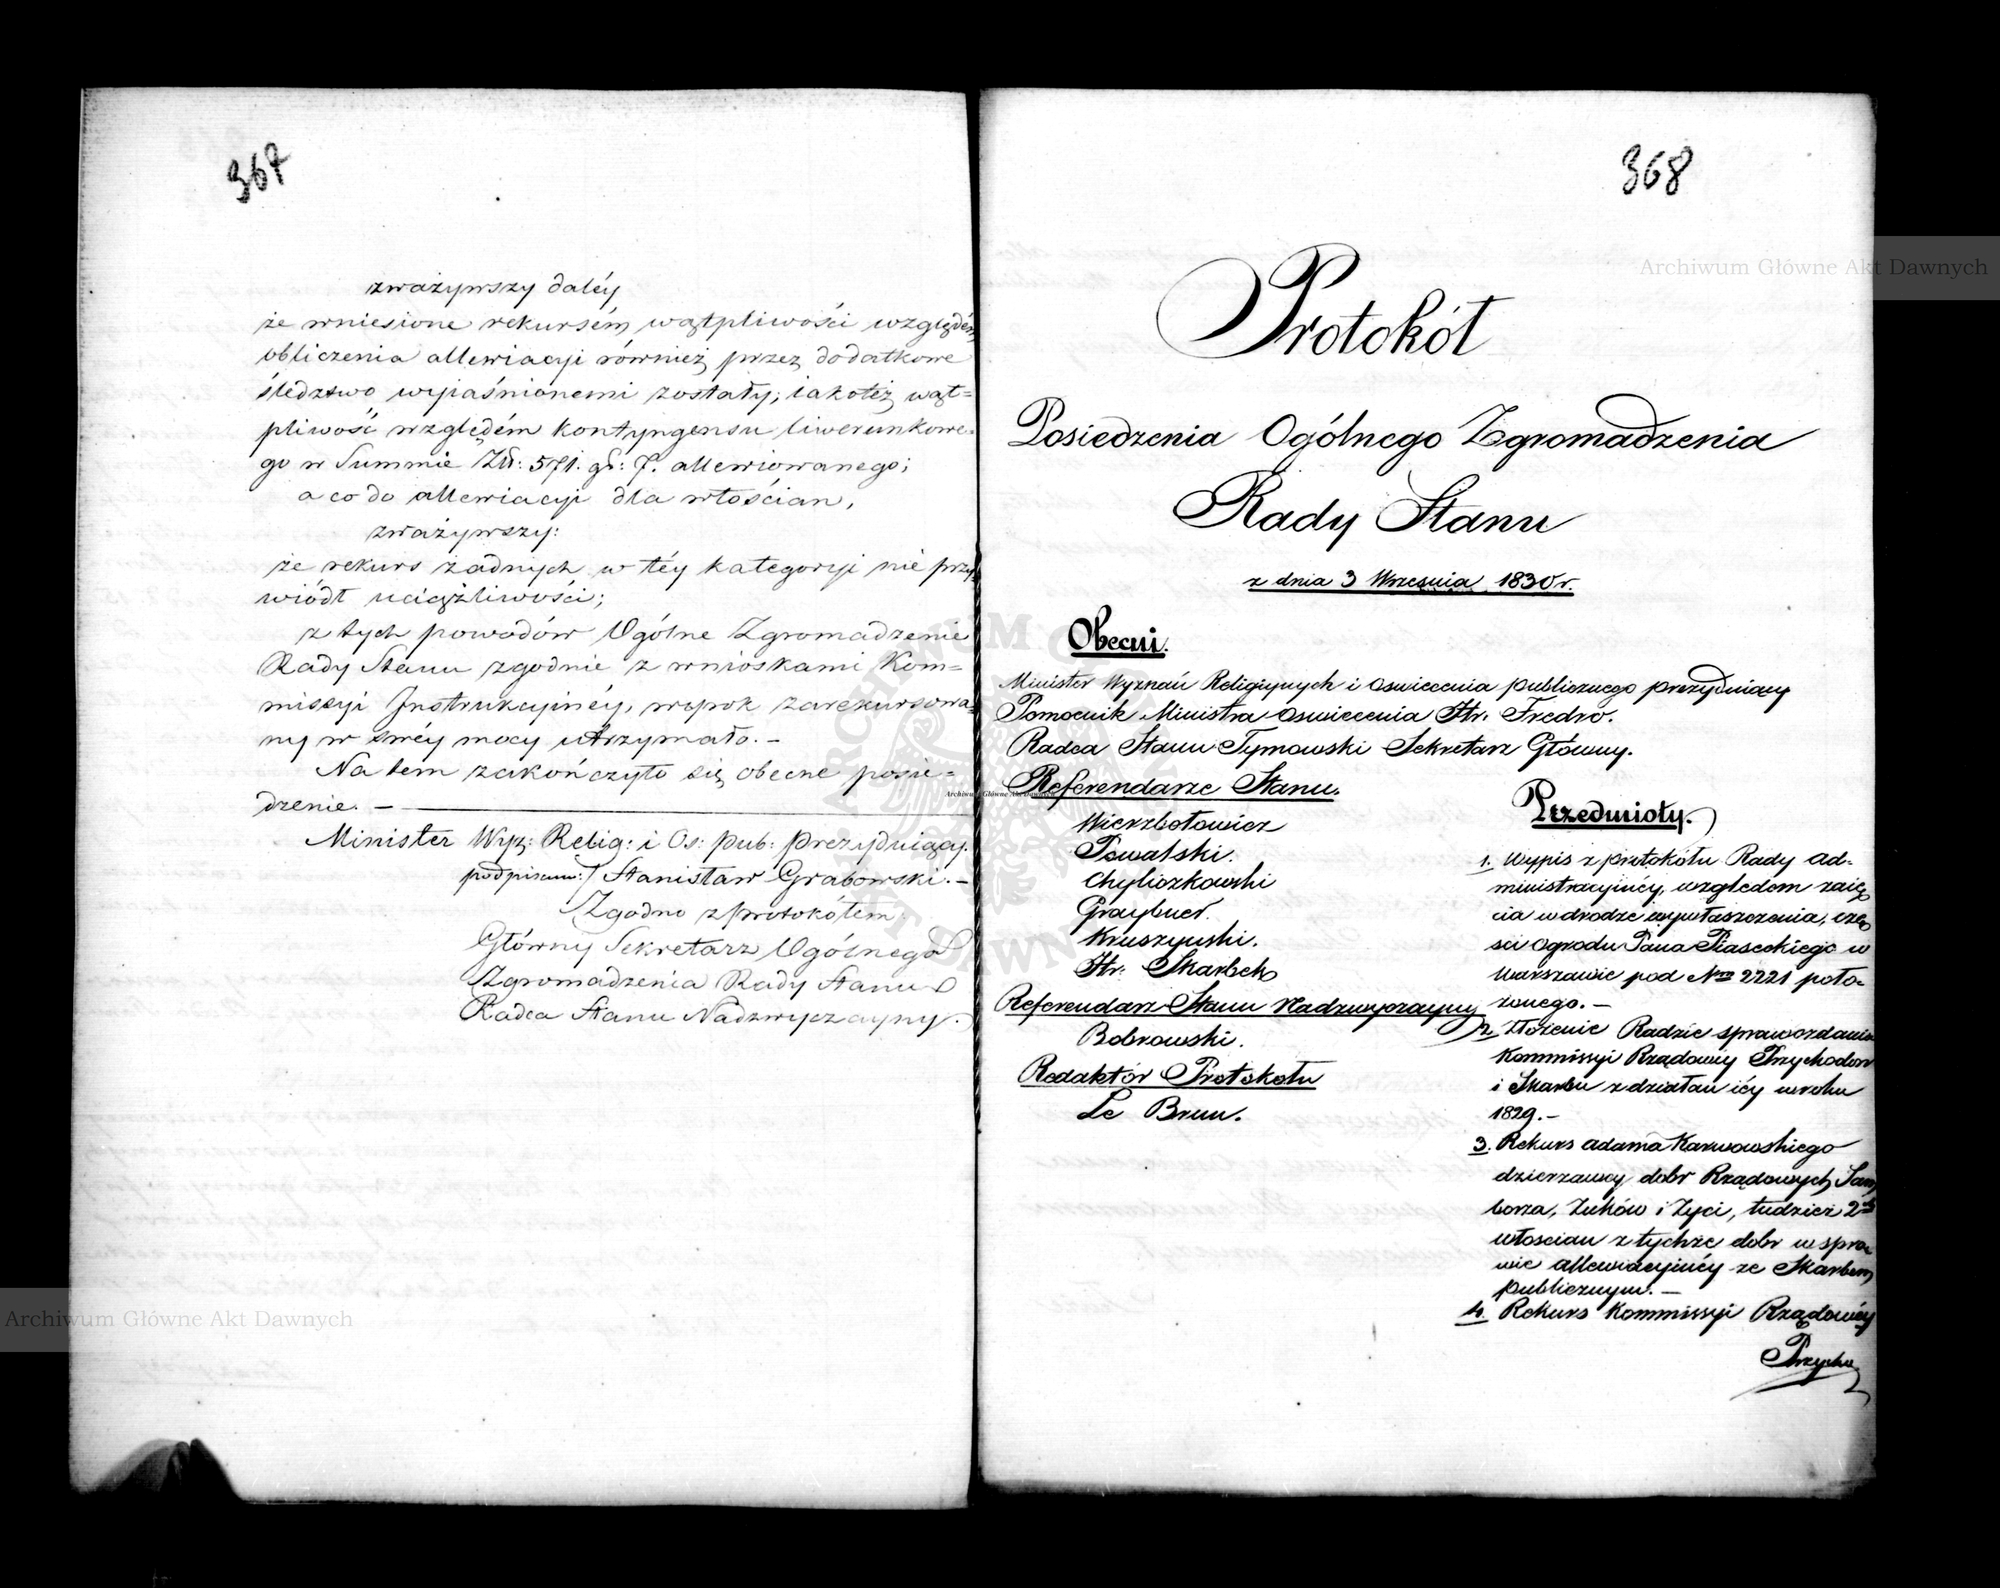 367
zważywszy daléy
że wniesione rekursém wątpliwości względém
obliczenia allewiacyi również przez dodatkowe
śledztwo wyiaśnionemi zostały; iakoteż wąt=
pliwość względém kontyngensu liwerunkowe=
go w Summie Zł: 571. gr: 7. allewiowanego;
a co do allewiacyi dla włościan,
zważywszy:
że rekurs żadnych w téy kategoryi nie przy
wiódł uciążliwości;
z tych powodów Ogólne Zgromadzenie
Rady Stanu zgodnie z wnioskami Kom=
missyi Instrukcyinéy, wyrok zarekursowa=
ny w swéy mocy utrzymało. –
Na tem zakończyło się obecne posie=
dzenie. –
Minister Wyz: Relig: i Os: pub: prezyduiący.
podpisano:/ Stanisław Grabowski. –
Zgodno z protokółem
Główny Sekretarz Ogólnego
Zgromadzenia Rady Stanu
Radca Stanu Nadzwyczayny.
368
Protokół
Posiedzenia Ogólnego Zgromadzenia
Rady Stanu
z dnia 3 Września 1830 r.
Obecni.
Minister Wyznań Religiynych i Oswiecenia publicznego prezyduiący
Pomocnik Ministra Oswiecenia Hr. Fredro.
Radca Stanu Tymowski Sekretarz Główny.
Referendarze Stanu.
Wierzbołowicz
Powalski.
Chyliczkowski
Graybner.
Kruszyński.
Hr. Skarbek
Referendarz Stanu Nadzwyczayny
Bobrowski.
Redaktór Protokołu
Le Brun.
Przedmioty.
1. Wypis z protokołu Rady Ad=
ministracyinéy, względem zaię
cia w drodze wywłaszczenia, czę
sci ogrodu Pana Piaseckiego w
Warszawie pod Nro 2221 poło=
żonego. –
2. Złożenie Radzie sprawozdania
Kommissyi Rządowéy Przychodów
i Skarbu z działań iéy w roku
1829. –
3. Rekurs Adama Karwowskiego
dzierzawcy dobr Rządowych Sam
borza, Żuków i Życi, tudzież 2ch
włoscian z tychże dobr w spra=
wie allewiacyinéy ze Skarbem
publicznym. –
4. Rekurs Kommissyi Rządowéy
Przycho
Archiwum Główne Akt Dawnych
Archiwum Główne Akt Dawnych
Archiwum Główne Akt Dawnych